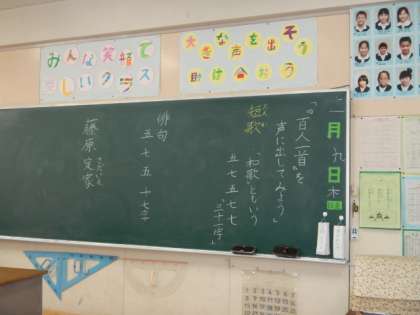 みんな笑顔で
楽しいクラス
大きな声を出そう
助け合おう
一月九日木
「百人一首」を
声に出してみよう
短歌
たんか
「和歌」ともいう
五七五七七
「三十一字」
俳句
五七五 十七字
藤原定家
さだいえ